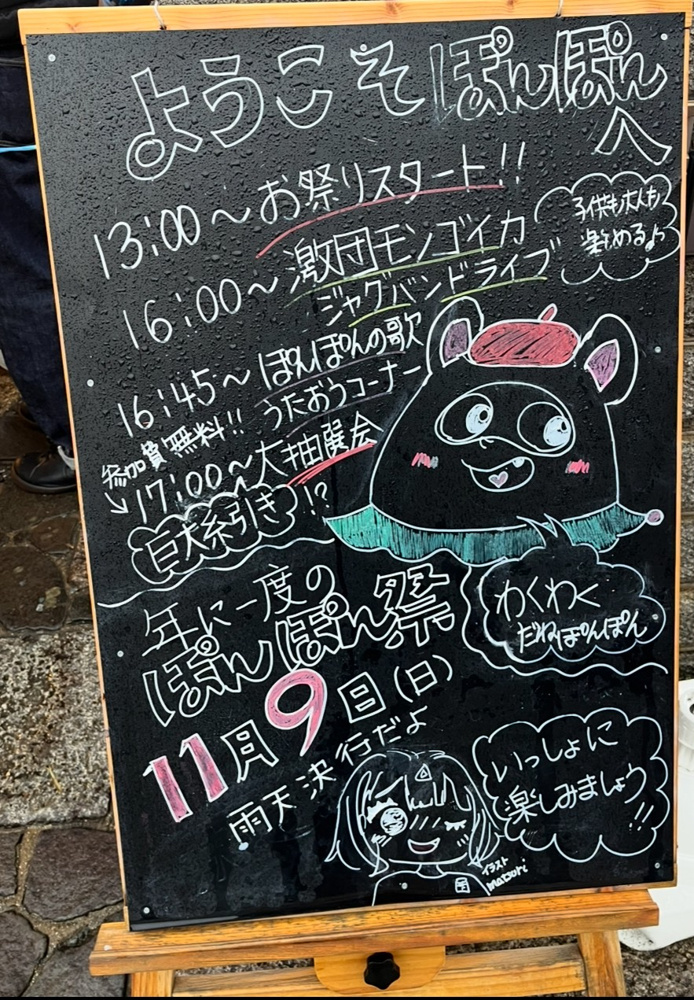 ようこそぽんぽん
へ
13:00〜お祭りスタート!!
子供も大人も
楽めるよ
16:00〜激団モンゴイカ
ジャグバンドライブ
16:45〜ぽんぽんの歌
うたおうコーナー
参加費無料!!
17:00〜大抽選会
巨大糸引き!?
年に一度の
ぽんぽん祭
わくわく
だねぽんぽん
11月9日(日)
雨天決行だよ
いっしょに
楽しみましょう!!
イラスト
matsuri